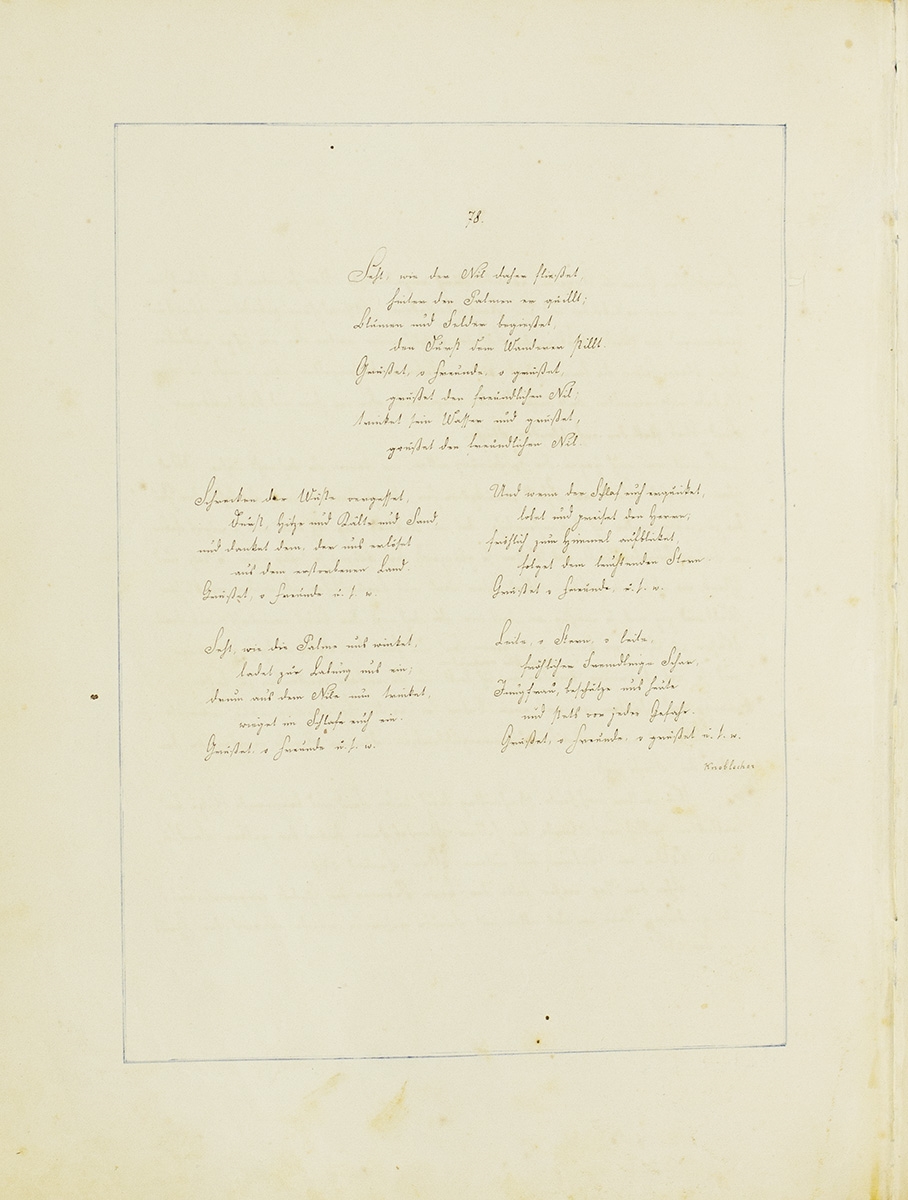 78.
Seht, wie der Nil daher fließet,
hinter den Palmen er quillt;
Blumen und Felder begießet,
den Durst dem Wanderer stillt.
Grüßet, o Freunde, o grüßet,
grüßet den freundlichen Nil;
trinket sein Wasser und grüßet,
grüßet den freundlichen Nil.
Schrecken der Wüste vergesset,
Durst, Hitze und Kälte und Sand,
und danket dem, der uns erlöset
aus dem erstorbenen Land.
Grüßet, o Freunde u. s. w.
Seht, wie die Palme uns winket,
ladet zur Labung uns ein;
drum aus dem Nile nun trinket,
wieget im Schlafe euch ein.
Grüßet, o Freunde u. s. w.
Und wenn der Schlaf euch erquicket,
lobet und preiset den Herrn,
fröhlich zum Himmel aufblicket,
folget dem leuchtenden Stern.
Grüßet o Freunde, u. s. w.
Leite, o Stern, o leite,
fröhlicher Fremdlinge Schar,
Jungfrau, beschütze uns heute
und stets vor jeder Gefahr.
Grüßet, o Freunde, o grüßet u. s. w.
Knoblecher